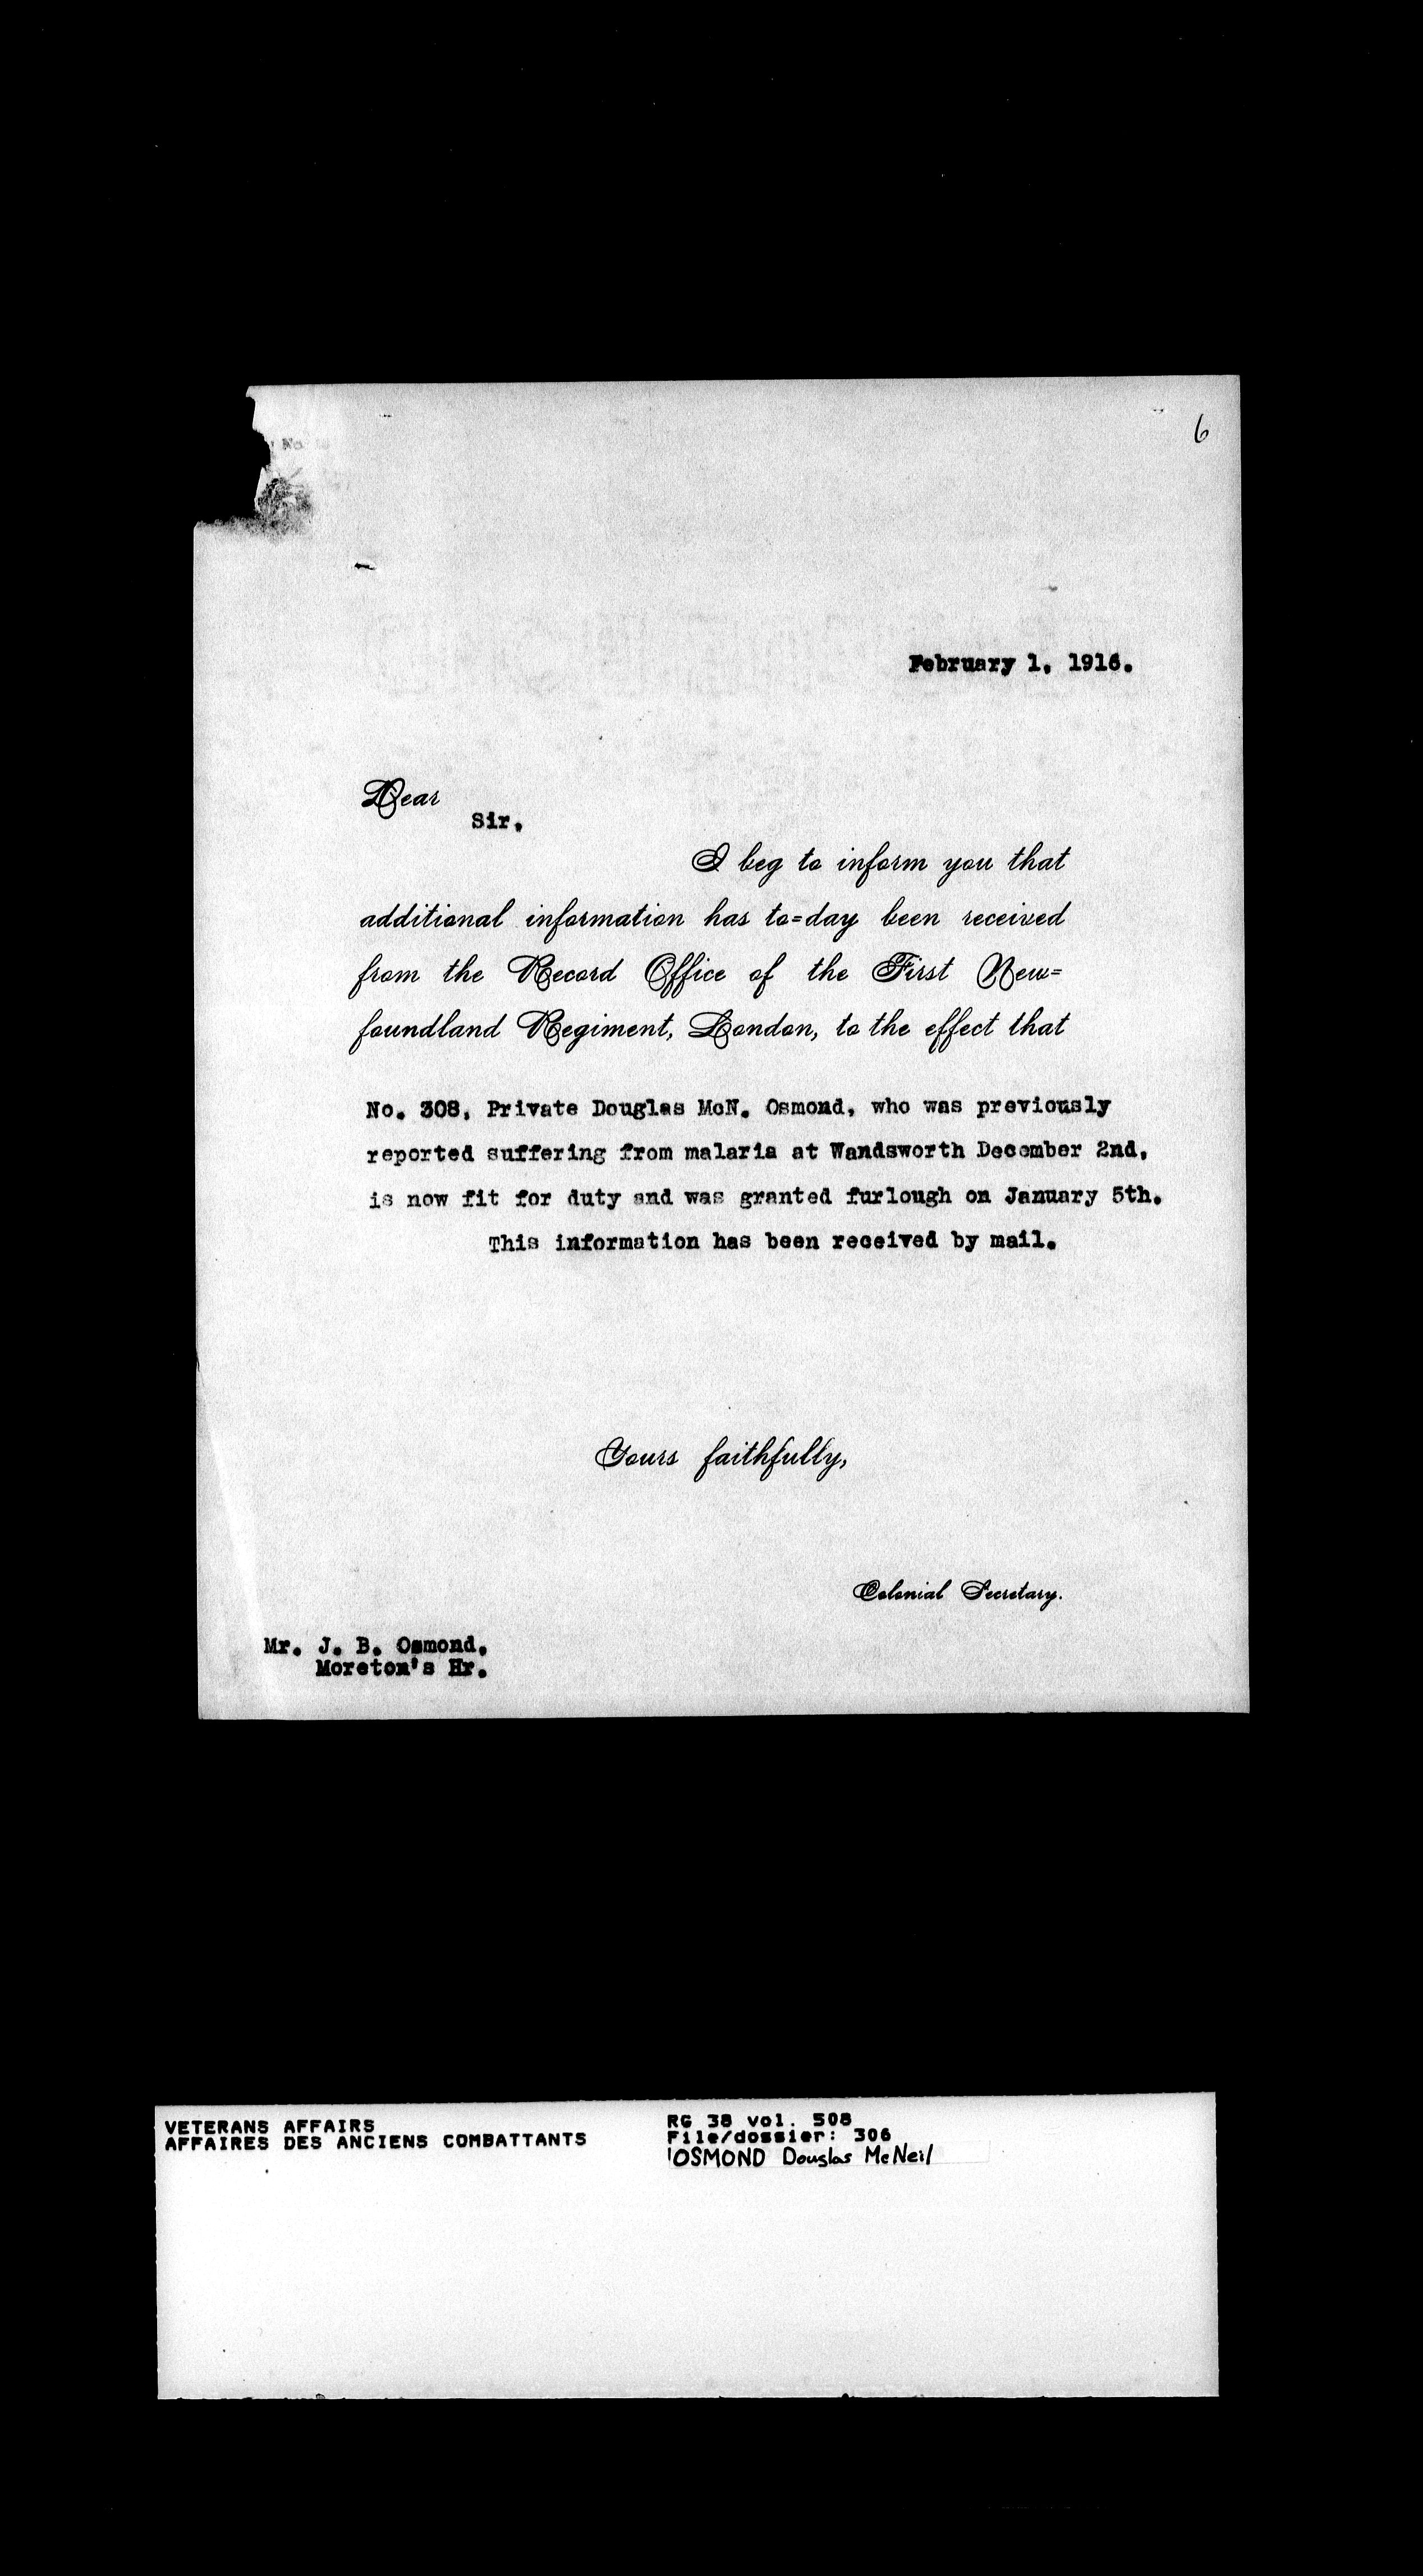 6
No
February 1, 1916.
Dear
Sir,
I beg to inform you that
additional information has to=day been received
from the Record Office of the First New=
foundland Regiment, London, to the effect that
No. 308, Private Douglas McN. Osmond, who was previously
reported suffering from malaria at Wandsworth December 2nd,
is now fit for duty and was granted furlough on January 5th.
This information has been received by mail.
Yours faithfully,
Colonial Secretary.
Mr. J. B. Osmond,
Moreton's Hr.
VETERANS AFFAIRS
AFFAIRES DES ANCIENS COMBATTANTS
RG 38 vol. 508
File/dossier: 306
OSMOND Douglas McNeil